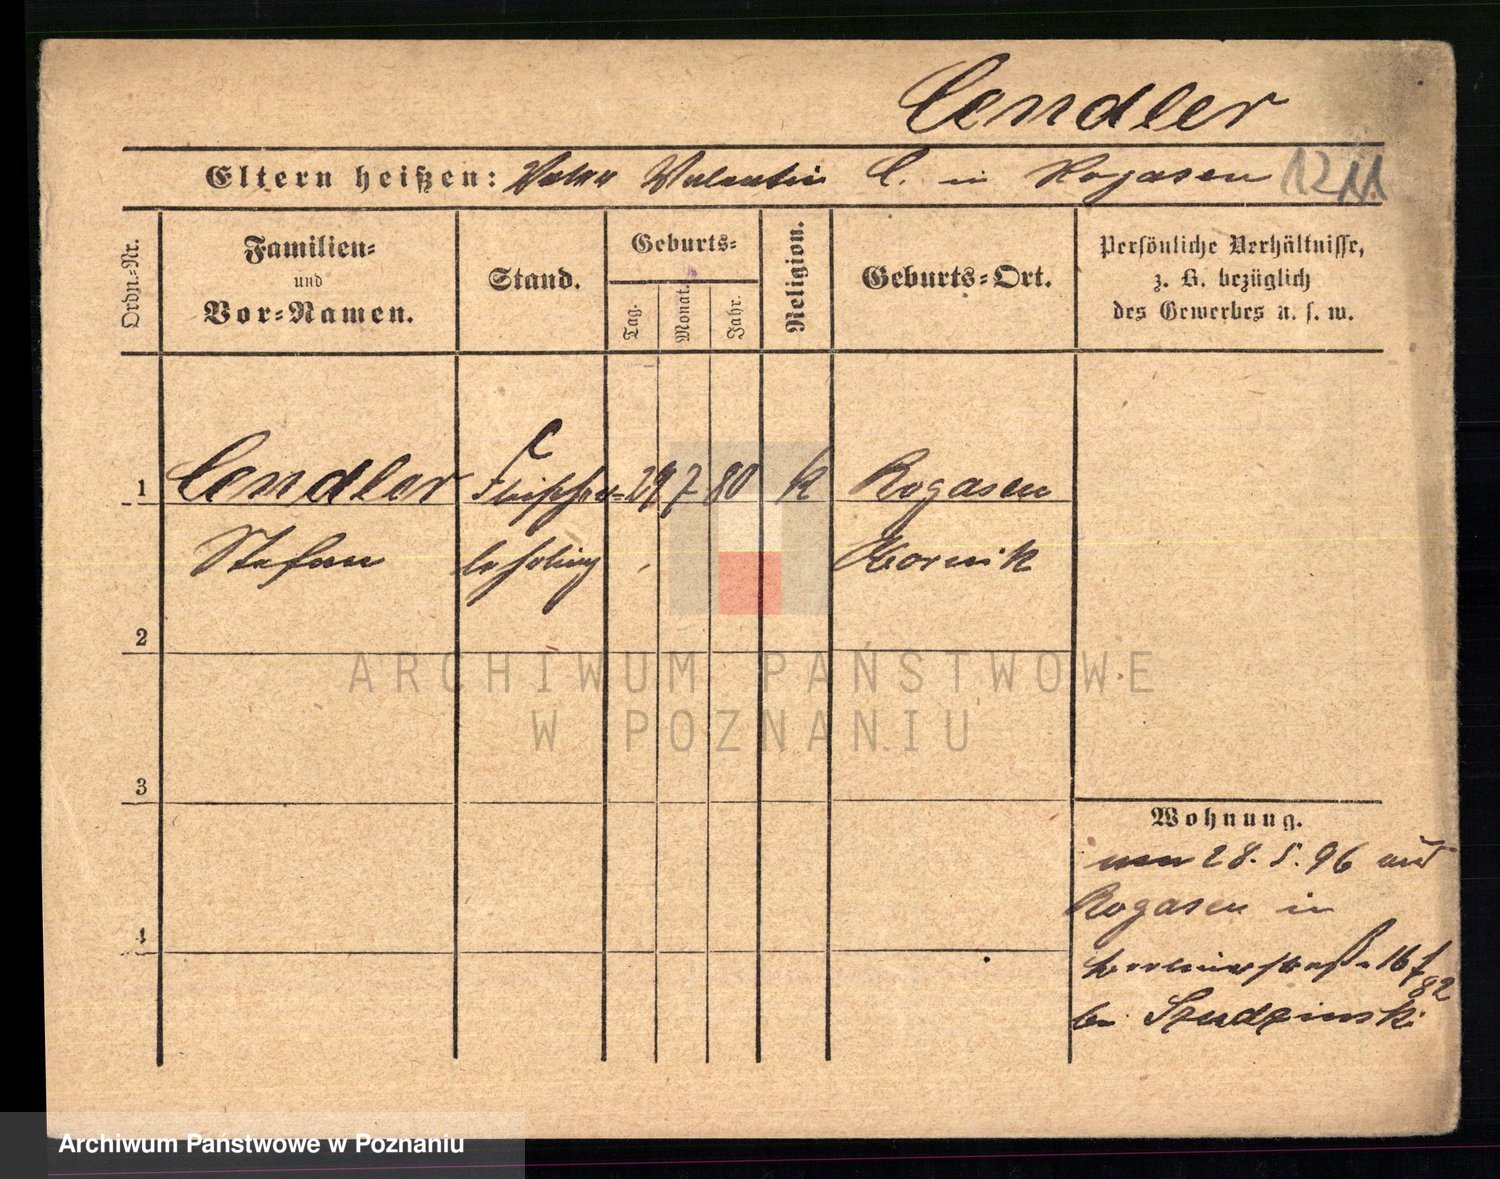 Cendler
Eltern heißen: Vater Valentin C. in Rogasen 12 11
Ordn.-Nr.
Familien-
und
Vor-Namen.
Stand.
Geburts-
Tag.
Monat.
Jahr.
Religion.
Geburts-Ort.
Persönliche Verhältnisse,
z. B. bezüglich
des Gewerbes u. s. w.
C
1 Cendler Fleischer- 29 7 80 k Rogasen
Stefan lehrling Obornik
2
ARCHIWUM PAŃSTWOWE
W POZNANIU
3
Wohnung.
28.5.96 aus
Rogasen in
16/82
bei Szudzinski
4
Archiwum Państwowe w Poznaniu